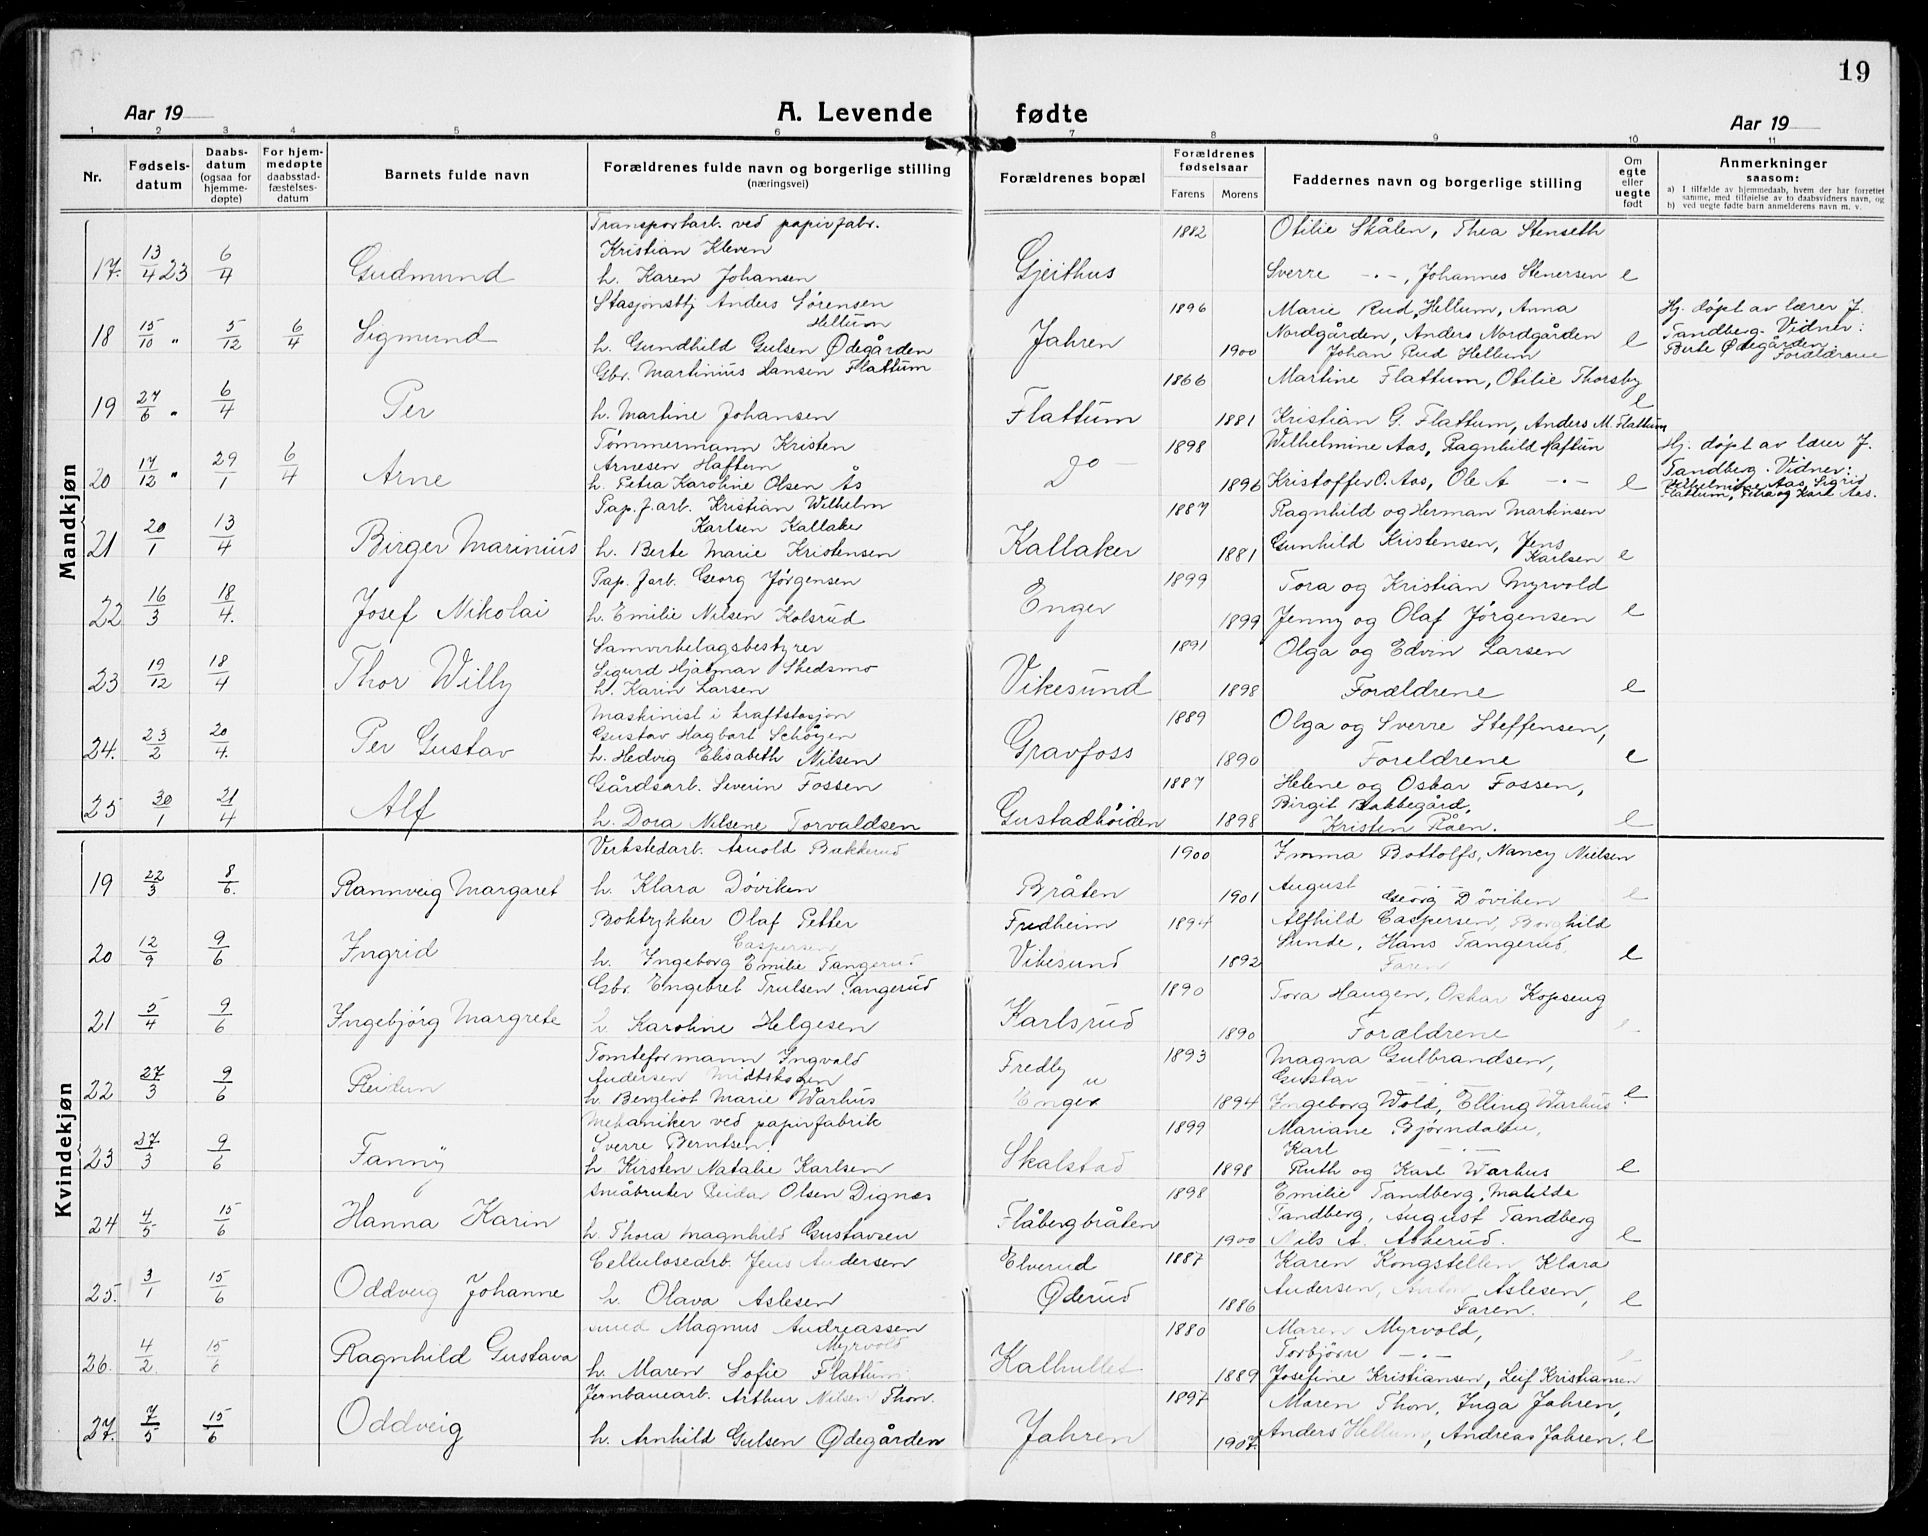 19
Aar 19
A. Levende fødte
Aar 19
1 2 3 4 5 6 7 8 9 10 11
Nr.
Fødsels-
datum
Daabs-
datum
(ogsaa for
hjemme-
døpte)
For hjem-
medøpte
daabsstad-
fæstelses-
datum
Barnets fulde navn
Forældrenes fulde navn og borgerlige stilling
(næringsvei)
Forældrenes bopæl
Forældrenes
fødselsaar
Farens Morens
Faddernes navn og borgerlige stilling
Om
egte
eller
uegte
født
Anmerkninger
saasom:
a) I tilfælde av hjemmedaab, hvem der har forrettet
samme, med tilføielse av to daabsvidners navn, og
b) ved uegte fødte barn anmelderens navn m. v.
Mandkjøn
Transportarb. ved papirfabr. 1882 Otilie Skålen, Thea Stenseth
Kristian Kleven
17. 13/4 23 6/4 Gudmund h. Karen Johansen Gjeithus Sverre -"-, Johannes Stenersen e
Stasjonsbtj Anders Sørensen 1896 Marie Rud, Hellum, Anna Hj. døpt av lærer J.
Hellum Nordgården, Anders Nordgården Tandberg. Vidner:
18 15/10 " 5/12 6/4 Sigmund h. Gundhild Gulsen Ødegården Jahren 1900 Johan Rud Hellum e Berte Ødegården. Forældrene
Gbr. Martinius Hansen Flattum 1866 Martine Flattum, Otilie Thorsby
19 27/6 " 6/4 Per h. Martine Johansen Flattum 1881 Kristian G. Flattum, Anders M. Flattum e
Tømmermann Kristen 1898 Wilhelmine Aas, Ragnhild Haftun Hj. døpt av lærer J.
Arnesen Haftum Tandberg. Vidner:
20 17/12 " 29/1 6/4 Arne h. Petra Karoline Olsen Ås Do - 1896 Kristoffer O. Aas, Ole A -"- e Vilhelmine Aas, Sigrid
Flattum, Petra og Karl Aas.
Pap. f. arb. Kristian Wilhelm 1887 Ragnhild og Herman Martinsen
Karlsen Kallaker
21 20/1 13/4 Birger Marinius h. Berte Marie Kristensen Kallaker 1881 Gunhild Kristensen, Jens
Karlsen e
Pap. f. arb. Georg Jørgensen 1899 Tora og Kristian Myrvold
22 16/3 18/4. Josef Nikolai h. Emilie Nilsen Kolsrud Enger 1899 Jenny og Olaf Jørgensen e
Samvirkelagsbestyrer 1891 Olga og Edvin Larsen
Sigurd Hjalmar Skedsmo
23 19/12 18/4 Thor Willy h. Karin Larsen Vikesund 1898 Forældrene e
Maskinist i kraftstasjon 1889 Olga og Sverre Steffensen,
Gustav Hagbart Schøyen
24. 23/2 20/4. Per Gustav h. Hedvig Elisabeth Nilsen Gravfoss 1890 Foreldrene e
Gårdsarb. Severin Fossen 1887 Helene og Oskar Fossen,
Birgit Bakkegård,
25 30/1 21/4 Alf h. Dora Nilsene Torvaldsen Gustadhöiden 1898 Kristen Råen. e
Kvindekjøn
Verkstedarb. Arnold Bakkerud 1900 Imma Bottolfs, Nancy Nielsen
19 22/3 8/6. Rannveig Margaret h. Klara Döviken Bråten 1901 August Georg Döviken e
Boktrykker Olaf Petter Fredheim 1894 Alfhild Caspersen, Borghild
Caspersen Sunde, Hans Tangerud,
20 12/9 9/6 Ingrid h. Ingeborg Emilie Tangerud Vikesund 1892 Faren e
Gbr. Engebret Trulsen Tangerud 1890 Tora Haugen, Oskar Kopseng
21 5/4 9/6 Ingebjörg Margrete h. Karoline Helgesen Karlsrud 1890 Forældrene e
Tomteformann Ingvald Fredly 1893 Magna Gulbrandsen,
Andersen Midtskogen u Gustav
22 27/3 9/6 Reidun h. Bergliot Marie Warhus Enger 1894 Ingeborg Wold, Elling Warhus. e
Mekaniker ved papirfabrik 1899 Mariane Bjørndalen,
Sverre Berntsen. Karl -"-
23 27/3 9/6 Fanny h. Kirsten Natalie Karlsen Skalstad 1898 Ruth og Karl Warhus e
Småbruker Reidar Olsen Dignes 1898 Emilie Tandberg, Matilde
Tandberg, August Tandberg
24 4/5 15/6 Hanna Karin h. Thora Magnhild Gustavsen Flåbergbråten 1900 Nils A. Askerud. e
Cellulosearb. Jens Andersen Elverud 1887 Karen Kongstellen Klara
Andersen, Anton Aslesen,
25. 3/1 15/6 Oddveig Johanne h. Olava Aslesen Øderud 1886 Faren. e
Smed Magnus Andreassen 1880 Maren Myrvold,
Myrvold Torbjörn -"-
26. 4/2 15/6 Ragnhild Gustava h. Maren Sofie Flattum Kalhullet 1889 Josefine Kristiansen, Leif Kristiansen
Jernbanearb. Arthur Nilsen Thon. 1897 Maren Thon, Inga Jahren,
27. 7/5 15/6 Oddveig h. Arnhild Gulsen Ødegården Jahren 1902. Anders Hellum, Andreas Jahren. e